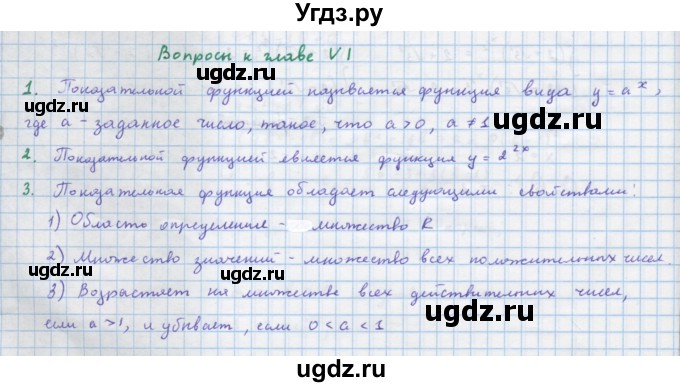 Угдз.ру
Вопросы к главе VI
1. Показательной функцией называется функция вида y = a^x,
где a - заданное число, такое, что a > 0, a ≠ 1
2. Показательной функцией является функция y = 2^2x
3. Показательная функция обладает следующими свойствами:
1) Область определения - множество R
2) Множество значений - множество всех положительных чисел.
3) Возрастает на множестве всех действительных чисел,
если a > 1, и убывает, если 0 < a < 1
gdzru.com
gdzru.com
gdzru.com
gdzru.com
gdzru.com
gdzru.com